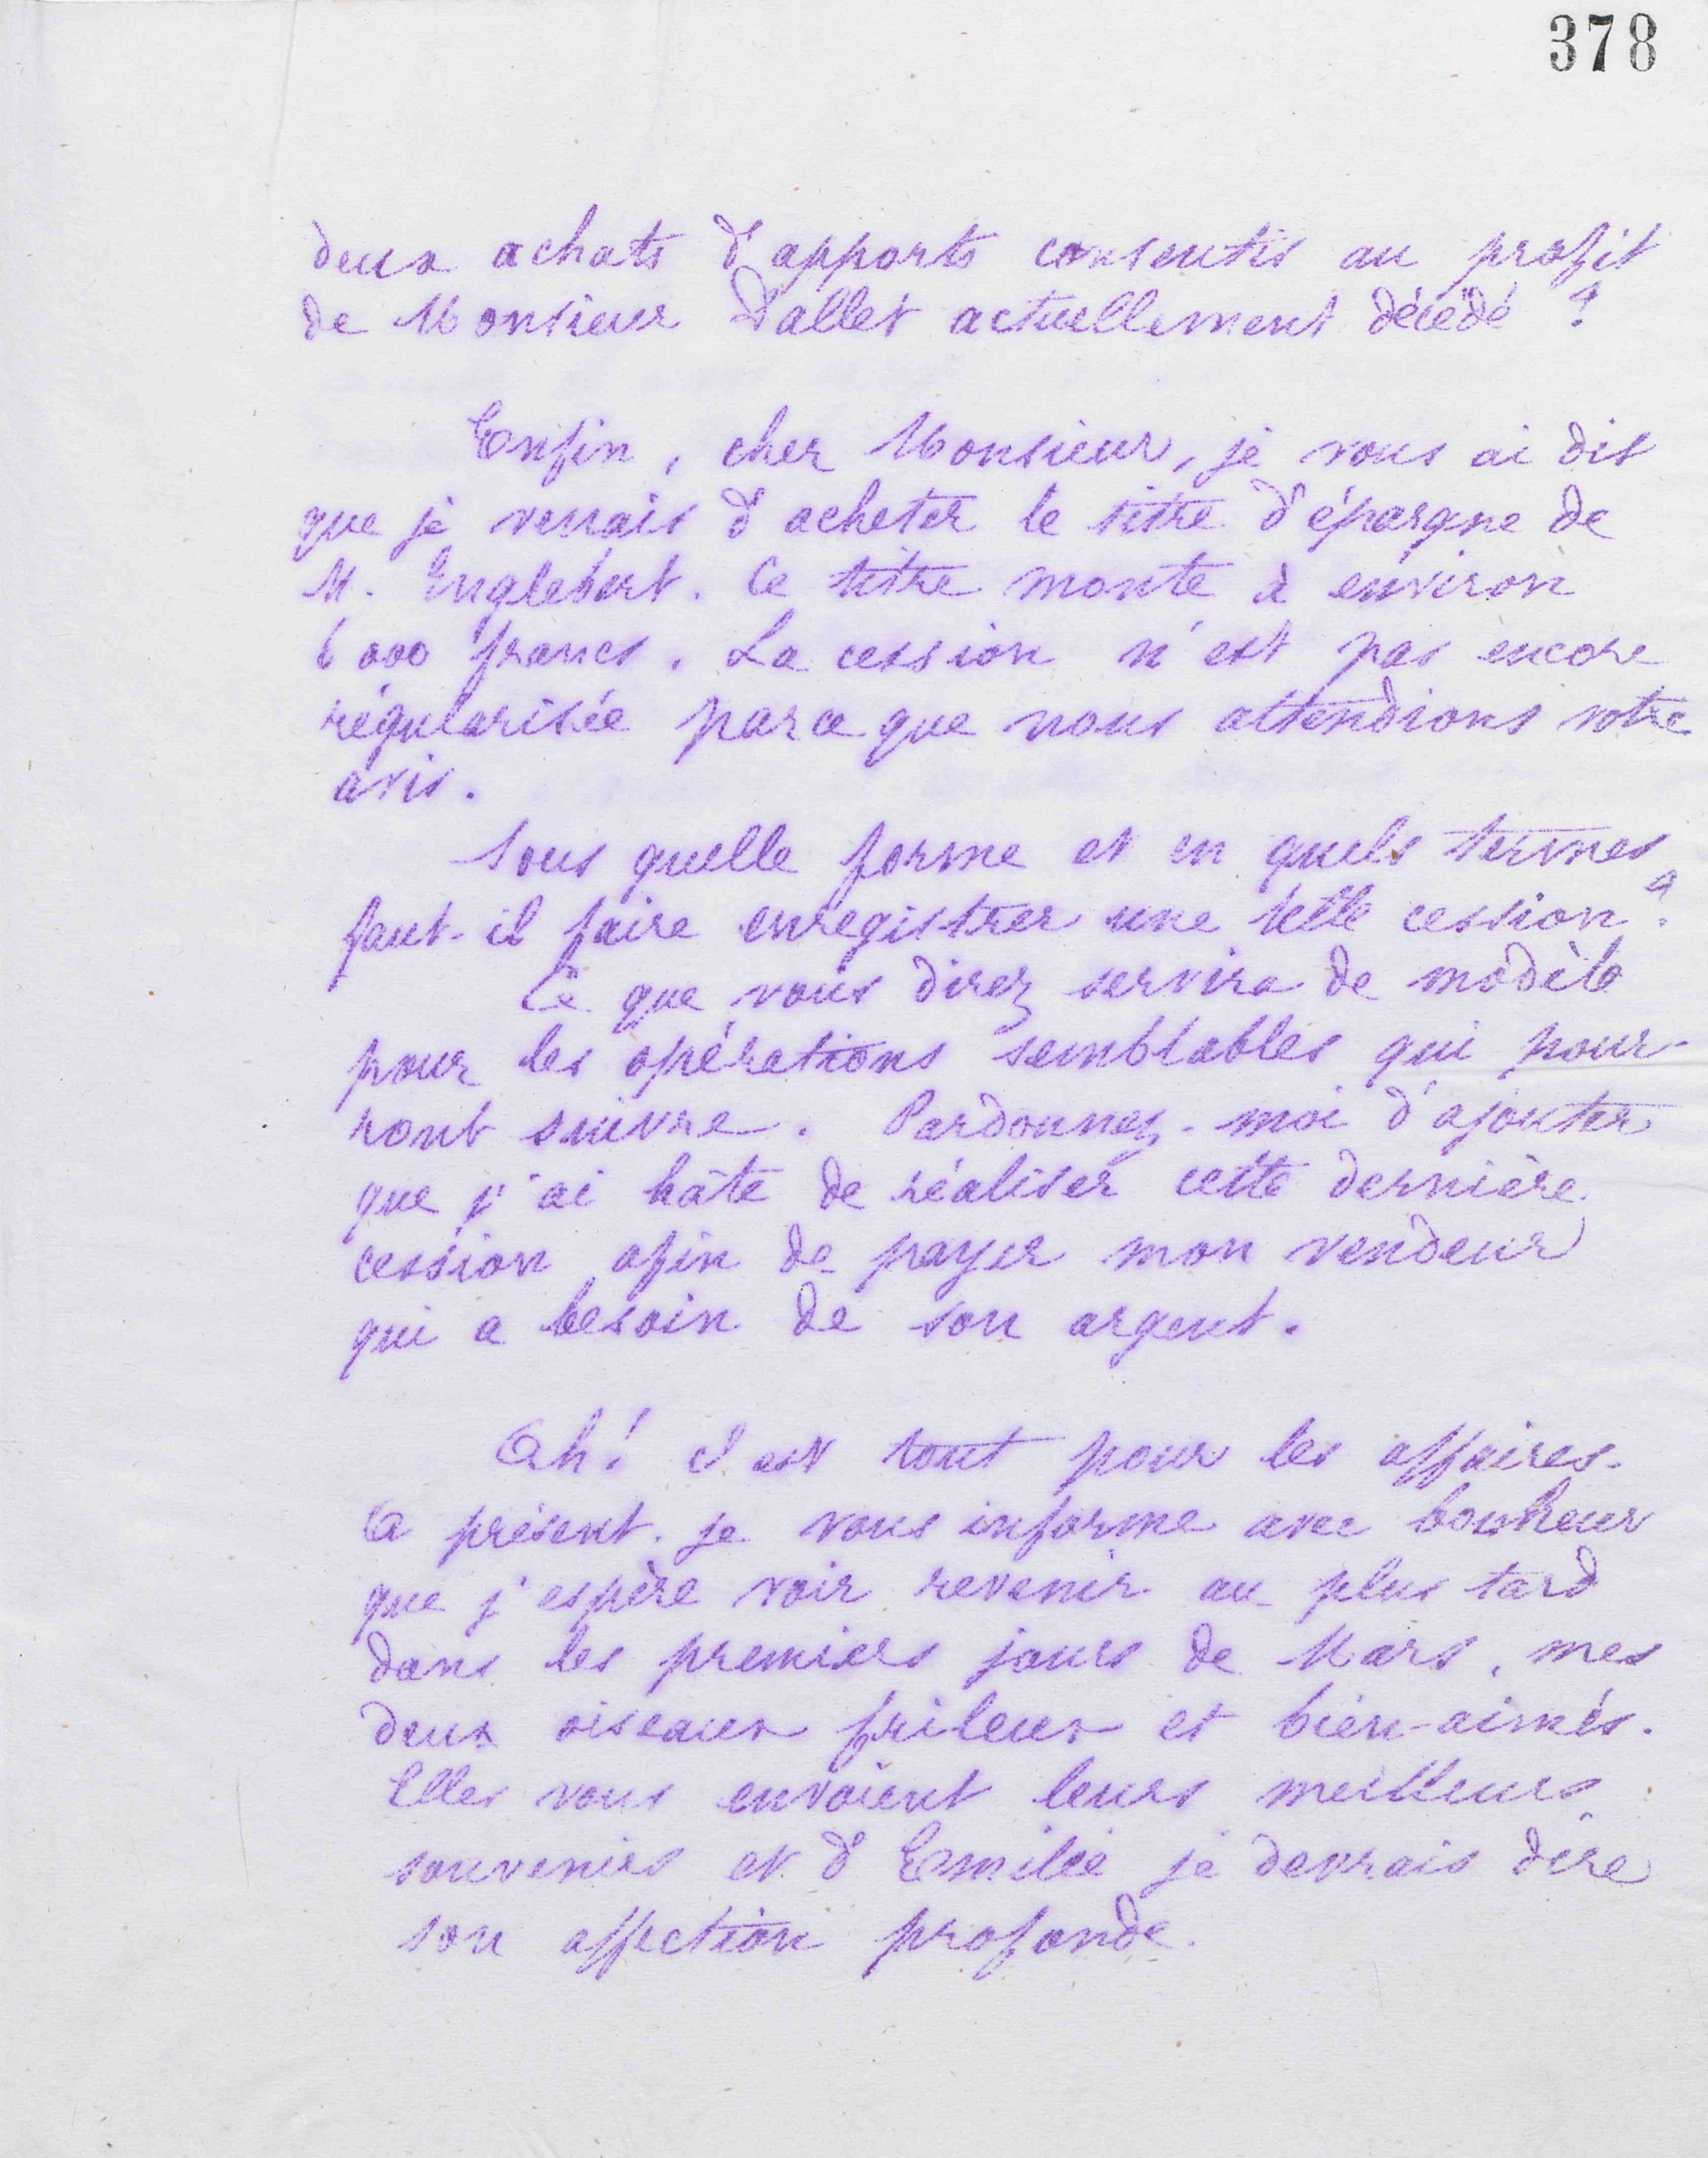 378
deux achats d'apports consentis au profit
de Monsieur Dallet actuellement décédé ?
Enfin, cher Monsieur, je vous ai dit
que je venais d'acheter le titre d'épargne de
M. Englebert. Ce titre monte à environ
6000 francs. La cession n'est pas encore
régularisée parce que nous attendions votre
avis.
Sous quelle forme et en quels termes
faut-il faire enregistrer une telle cession ?
Ce que vous direz servira de modèle
pour les opérations semblables qui pour-
ront suivre. Pardonnez-moi d'ajouter
que j'ai hâte de réaliser cette dernière
cession afin de payer mon vendeur
qui a besoin de son argent.
Ah! c'est tout pour les affaires.
A présent je vous informe avec bonheur
que j'espère voir revenir au plus tard
dans les premiers jours de Mars, mes
deux oiseaux frileux et bien-aimés.
Elles vous envoient leurs meilleurs
souvenirs et d'Emilie je devrais dire
son affection profonde.